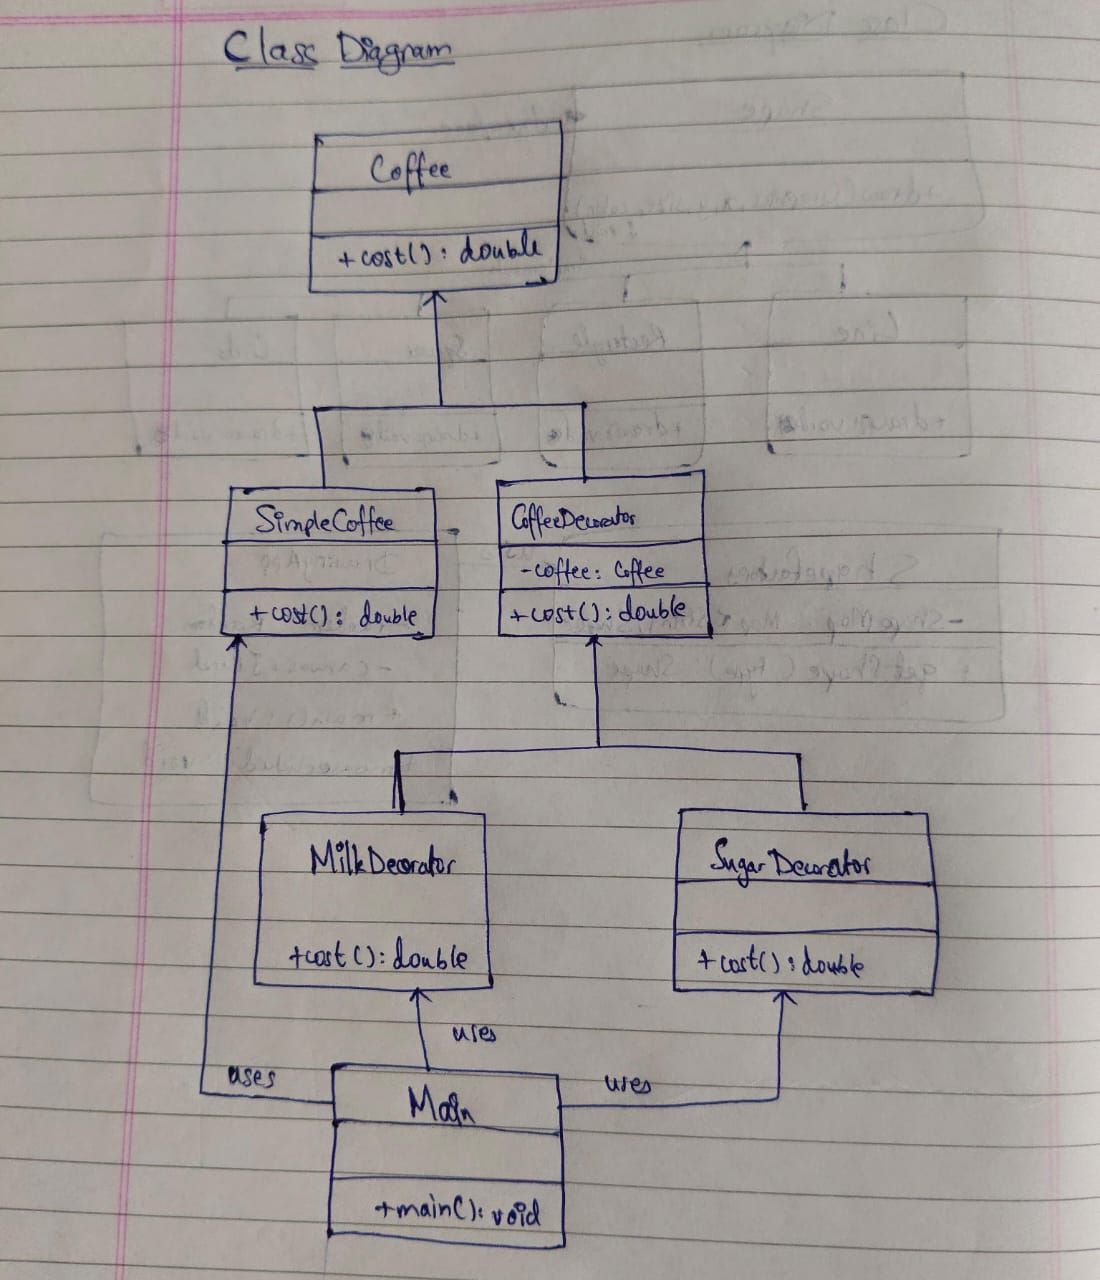 Class Diagram
Coffee
+cost(): double
SimpleCoffee
+cost(): double
CoffeeDecorator
-coffee: Coffee
+cost(): double
MilkDecorator
+cost(): double
SugarDecorator
+cost(): double
uses
uses
uses
Main
+main(): void